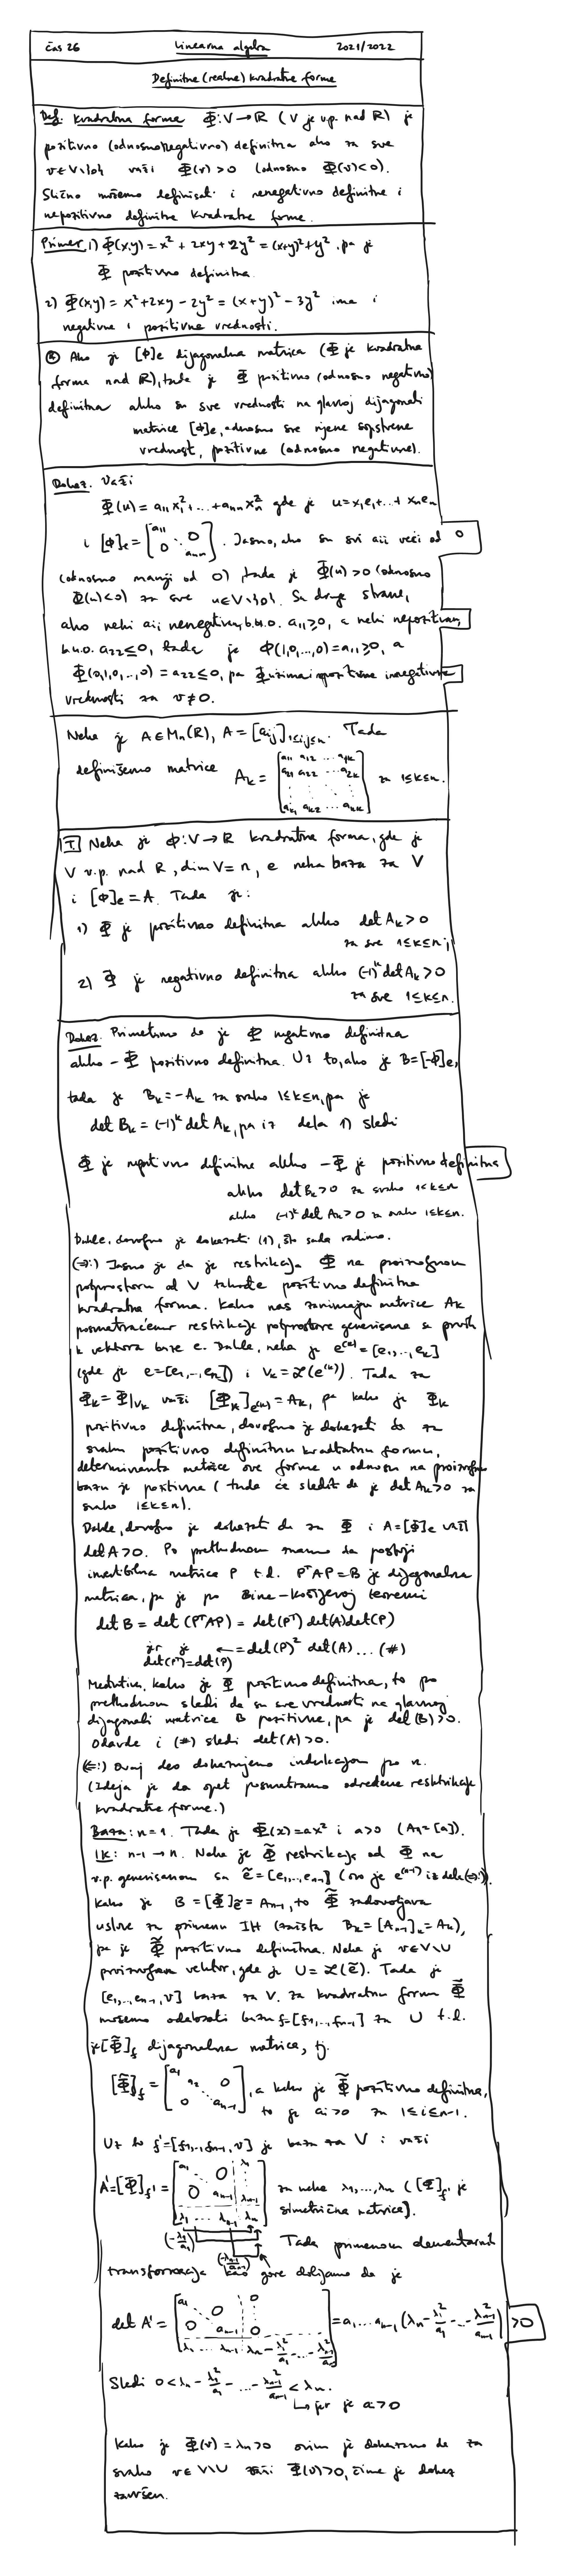 čas 26 Linearna algebra 2021/2022
Definitne (realne) kvadratne forme
Def. Kvadratna forma Φ: V → R (V je v.p. nad R) je
pozitivno (odnosno negativno) definitna ako za sve
v∈V\{0} važi Φ(v)>0 (odnosno Φ(v)<0).
Slično možemo definisati i nenegativno definitne i
nepozitivno definitne kvadratne forme.
Primer 1) Φ(x,y) = x² + 2xy + 2y² = (x+y)² + y², pa je
Φ pozitivno definitna.
2) Φ(x,y) = x² + 2xy - 2y² = (x+y)² - 3y² ima i
negativne i pozitivne vrednosti.
Ako je [Φ]e dijagonalna matrica (Φ je kvadratna
forma nad R), tada je Φ pozitivno (odnosno negativno)
definitna akko su sve vrednosti na glavnoj dijagonali
matrice [Φ]e, odnosno sve njene sopstvene
vrednosti, pozitivne (odnosno negativne).
Dokaz. Važi
Φ(u) = a₁₁x₁² + ... + aₙₙxₙ² gde je u = x₁e₁ + ... + xₙeₙ
i [Φ]e = [a₁₁ 0 ⋱ 0 aₙₙ]. Jasno, ako su svi aii veći od 0
(odnosno manji od 0) tada je Φ(u)>0 (odnosno
Φ(u)<0) za sve u∈V\{0}. Sa druge strane,
ako neki aii nenegativan, b.u.o. a₁₁≥0, a neki nepozitivan,
b.u.o. a₂₂≤0, tada je Φ(1,0,...,0) = a₁₁≥0, a
Φ(0,1,0,...,0) = a₂₂≤0, pa Φ uzima i pozitivne i negativne
vrednosti za v≠0.
Neka je A∈Mn(R), A = [aij]1≤i,j≤n. Tada
definišemo matrice Ak = [a₁₁ a₁₂ ... a₁k
a₂₁ a₂₂ ... a₂k
⋮ ⋮ ⋱ ⋮
ak₁ ak₂ ... akk] za 1≤k≤n.
T. Neka je Φ: V → R kvadratna forma, gde je
V v.p. nad R, dim V = n, e neka baza za V
i [Φ]e = A. Tada je:
1) Φ je pozitivno definitna akko det Ak > 0
za sve 1≤k≤n;
2) Φ je negativno definitna akko (-1)ᵏ det Ak > 0
za sve 1≤k≤n.
Dokaz. Primetimo da je Φ negativno definitna
akko -Φ pozitivno definitna. Uz to, ako je B = [-Φ]e,
tada je Bk = -Ak za svako 1≤k≤n, pa je
det Bk = (-1)ᵏ det Ak, pa iz dela 1) sledi
Φ je negativno definitna akko -Φ je pozitivno definitna
akko det Bk > 0 za svako 1≤k≤n
akko (-1)ᵏ det Ak > 0 za svako 1≤k≤n.
Dakle, dovoljno je dokazati (1), što sada radimo.
(⇒:) Jasno je da je restrikcija Φ na proizvoljnom
potprostoru od V takođe pozitivno definitna
kvadratna forma. Kako nas zanimaju matrice Ak
posmatraćemo restrikcije potprostore generisane sa prvih
k vektora baze e. Dakle, neka je e⁽ᵏ⁾ = [e₁,...,ek]
(gde je e = [e₁,...,en]) i Vk = ℒ(e⁽ᵏ⁾). Tada za
Φk = Φ|Vk važi [Φk]e⁽ᵏ⁾ = Ak, pa kako je Φk
pozitivno definitna, dovoljno je dokazati da za
svaku pozitivno definitnu kvadratnu formu,
determinanta matrice ove forme u odnosu na proizvoljnu
bazu je pozitivna (tada će slediti da je det Ak > 0 za
svako 1≤k≤n).
Dakle, dovoljno je dokazati da za Φ i A = [Φ]e važi
det A > 0. Po prethodnom znamo da postoji
invertibilna matrica P t.d. PᵀAP = B je dijagonalna
matrica, pa je po Bine-Košijevoj teoremi
det B = det(PᵀAP) = det(Pᵀ) det(A) det(P)
jer je det(Pᵀ)=det(P) ← = det(P)² det(A) ... (#)
Međutim, kako je Φ pozitivno definitna, to po
prethodnom sledi da su sve vrednosti na glavnoj
dijagonali matrice B pozitivne, pa je det(B) > 0.
Odavde i (#) sledi det(A) > 0.
(⇐:) Ovaj deo dokazujemo indukcijom po n.
(Ideja je da opet posmatramo određene restrikcije
kvadratne forme.)
Baza: n=1. Tada je Φ(x) = ax² i a>0 (A₁ = [a]).
IK: n-1 → n. Neka je Φ̃ restrikcija od Φ na
v.p. generisanom sa ẽ = [e₁,...,en-1] (ovo je e⁽ⁿ⁻¹⁾ iz dela (⇒:)).
Kako je B = [Φ̃]ẽ = An-1, to Φ̃ zadovoljava
uslove za primenu IH (zaista Bk = [An-1]k = Ak),
pa je Φ̃ pozitivno definitna. Neka je v∈V\U
proizvoljan vektor, gde je U = ℒ(ẽ). Tada je
[e₁,...,en-1,v] baza za V. Za kvadratnu formu Φ̃
možemo odabrati bazu f = [f₁,...,fn-1] za U t.d.
je [Φ̃]f dijagonalna matrica, tj.
[Φ̃]f = [a₁ a₂ 0 ⋱ 0 an-1], a kako je Φ̃ pozitivno definitna,
to je ai>0 za 1≤i≤n-1.
Uz to f' = [f₁,...,fn-1,v] je baza za V i važi
A' = [Φ]f' = [a₁ 0 λ₁ ⋱ 0 an-1 λn-1 λ₁ ... λn-1 λn] za neke λ₁,...,λn ([Φ]f' je
simetrična matrica).
(-λ₁/a₁) (-λn-1/an-1) Tada primenom elementarnih
transformacija kao gore dobijamo da je
det A' = [a₁ 0 0 ⋱ 0 an-1 0 λ₁ ... λn-1 λn - λ₁²/a₁ - ... - λ²n-1/an-1] = a₁...an-1 (λn - λ₁²/a₁ - ... - λ²n-1/an-1) > 0
Sledi 0 < λn - λ₁²/a₁ - ... - λ²n-1/an-1 < λn.
↳ jer je ai>0
Kako je Φ(v) = λn > 0 ovim je dokazano da za
svako v∈V\U važi Φ(v)>0, čime je dokaz
završen.